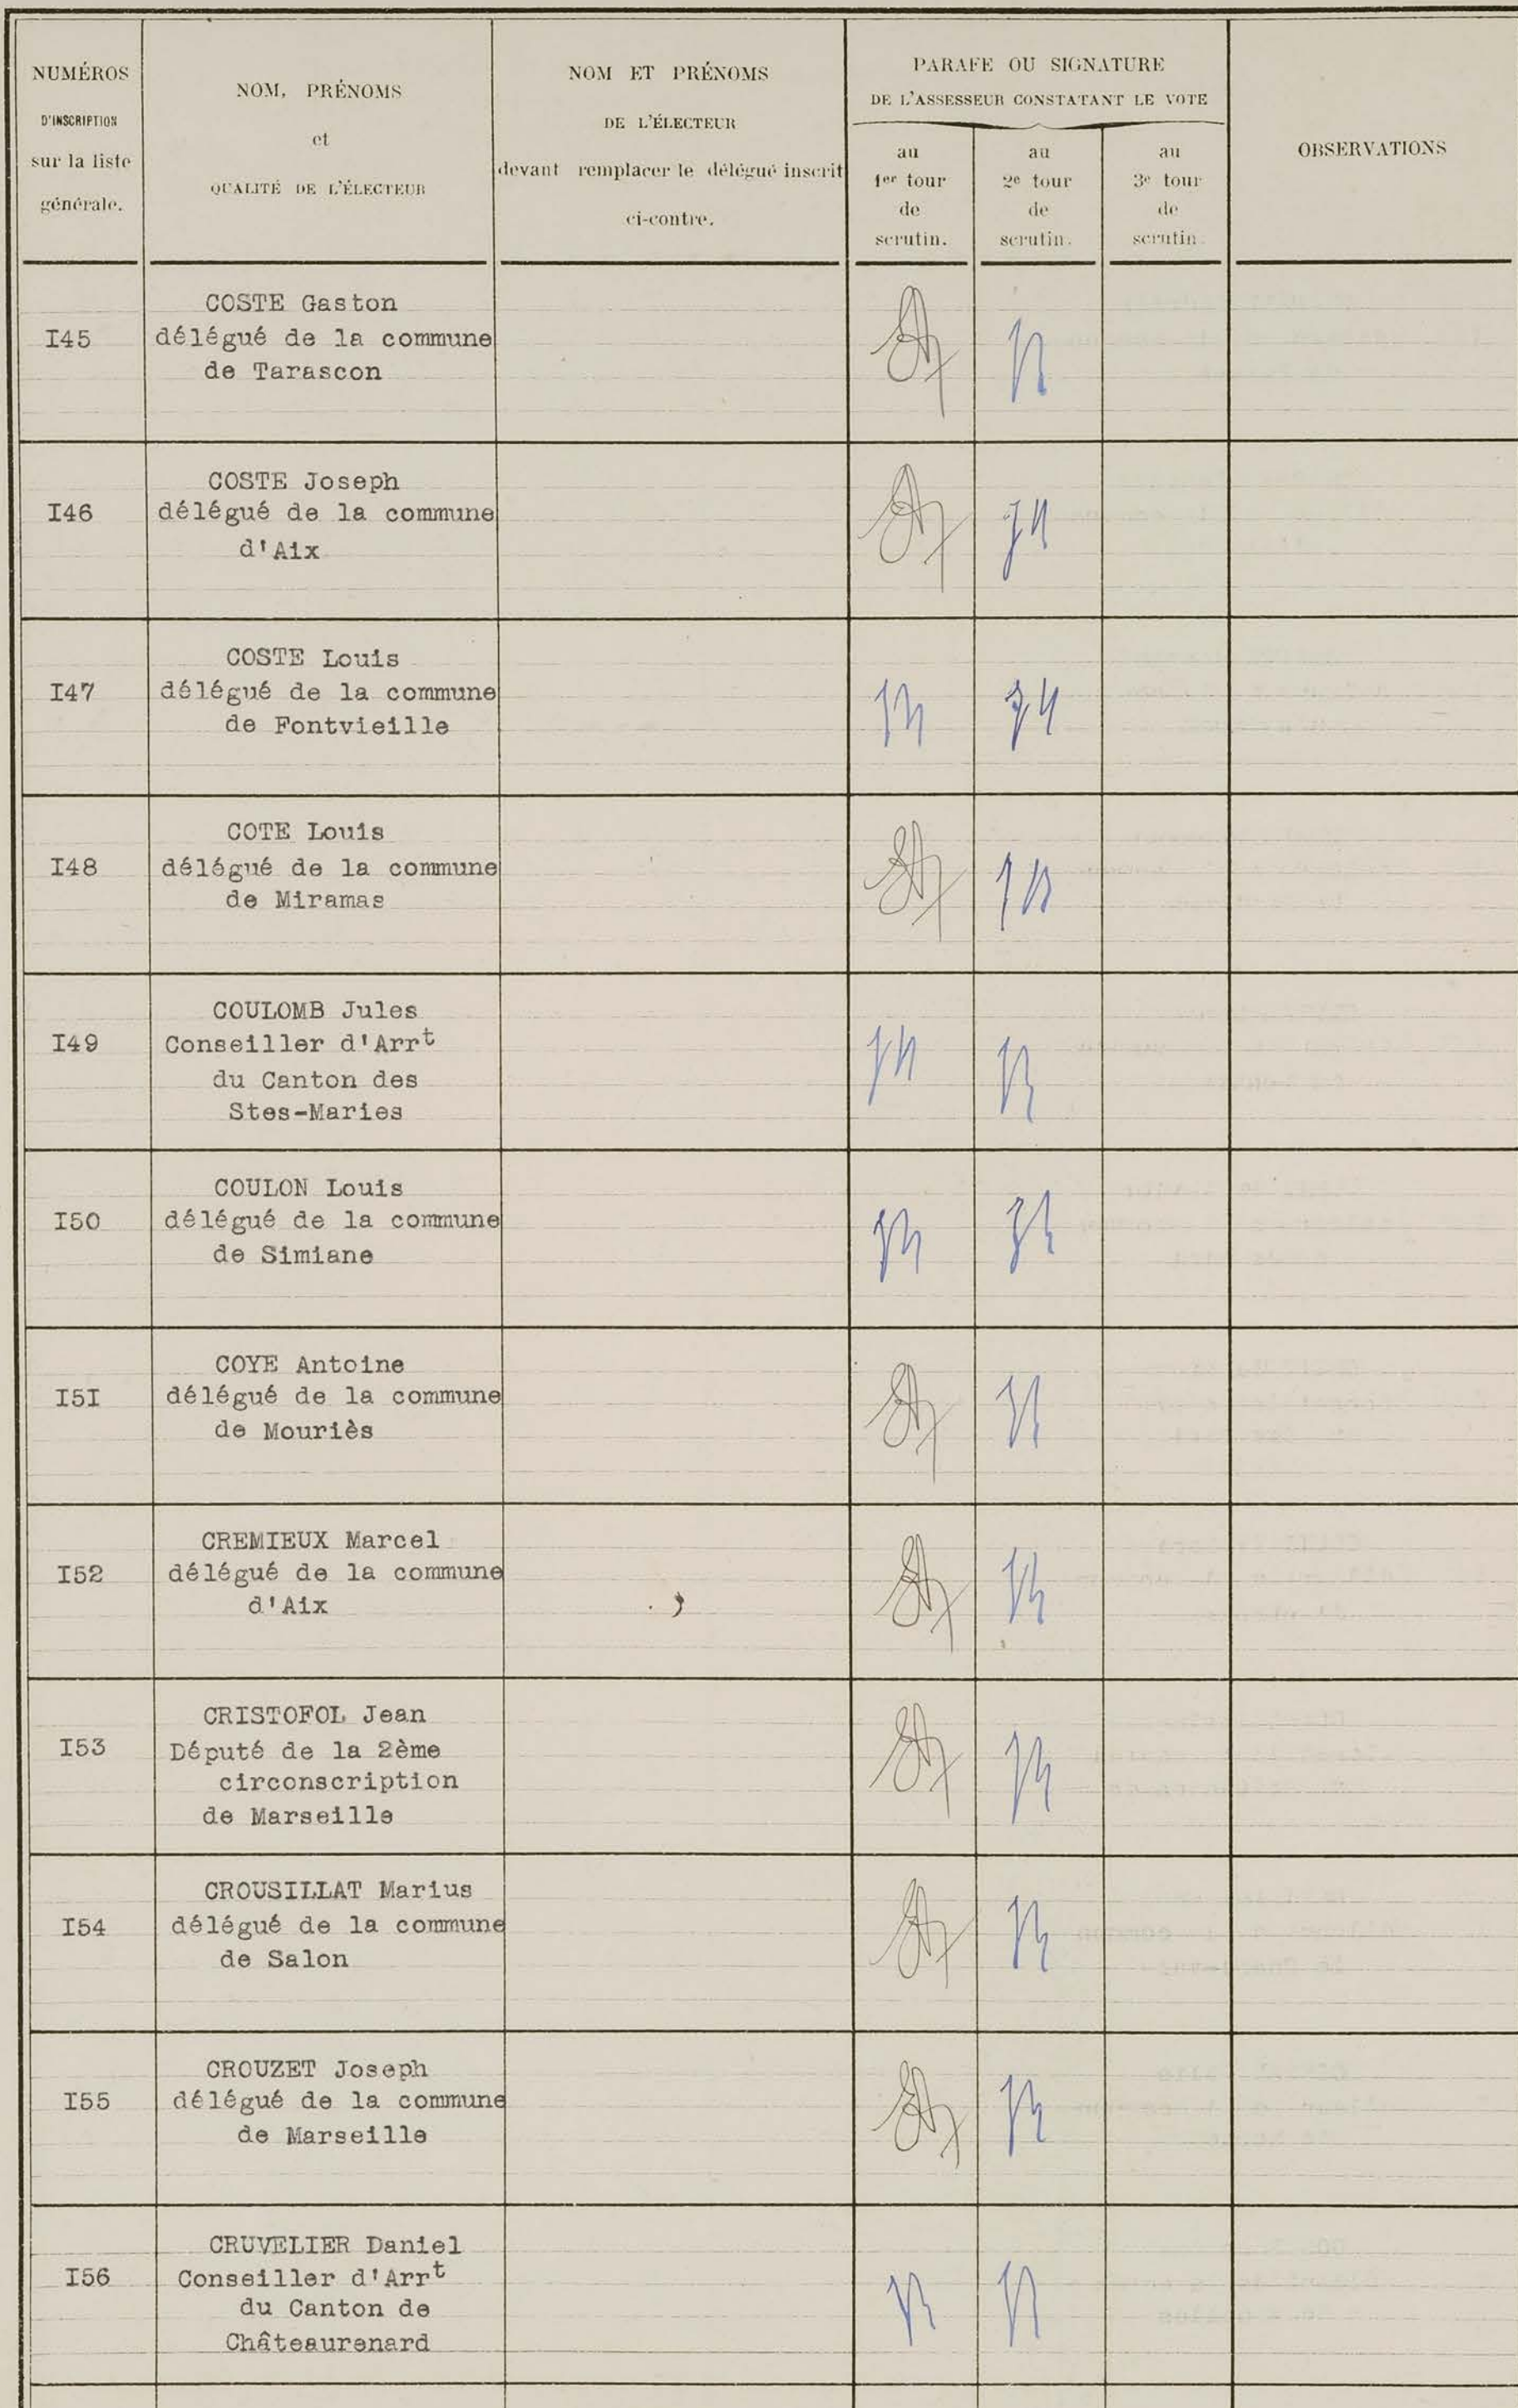 NUMÉROS
D'INSCRIPTION
sur la liste
générale.
NOM, PRÉNOMS
et
QUALITÉ DE L'ÉLECTEUR
NOM ET PRÉNOMS
DE L'ÉLECTEUR
devant remplacer le délégué inscrit
ci-contre.
PARAFE OU SIGNATURE
DE L'ASSESSEUR CONSTATANT LE VOTE
au
1er tour
de
scrutin.
au
2e tour
de
scrutin.
au
3e tour
de
scrutin.
OBSERVATIONS
I45
COSTE Gaston
délégué de la commune
de Tarascon
I46
COSTE Joseph
délégué de la commune
d'Aix
I47
COSTE Louis
délégué de la commune
de Fontvieille
I48
COTE Louis
délégué de la commune
de Miramas
I49
COULOMB Jules
Conseiller d'Arrt
du Canton des
Stes-Maries
I50
COULON Louis
délégué de la commune
de Simiane
I5I
COYE Antoine
délégué de la commune
de Mouriès
I52
CREMIEUX Marcel
délégué de la commune
d'Aix
I53
CRISTOFOL Jean
Député de la 2ème
circonscription
de Marseille
I54
CROUSILLAT Marius
délégué de la commune
de Salon
I55
CROUZET Joseph
délégué de la commune
de Marseille
I56
CRUVELIER Daniel
Conseiller d'Arrt
du Canton de
Châteaurenard